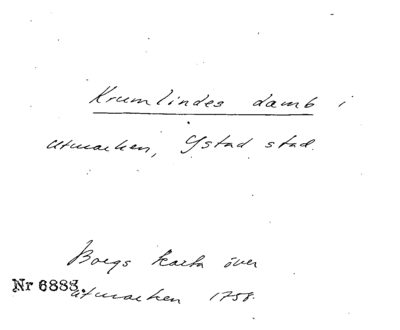 Krumlindes damb i
utmarken, Ystad stad.
Borgs karta över
Nr 6888.
utmarken 1758.